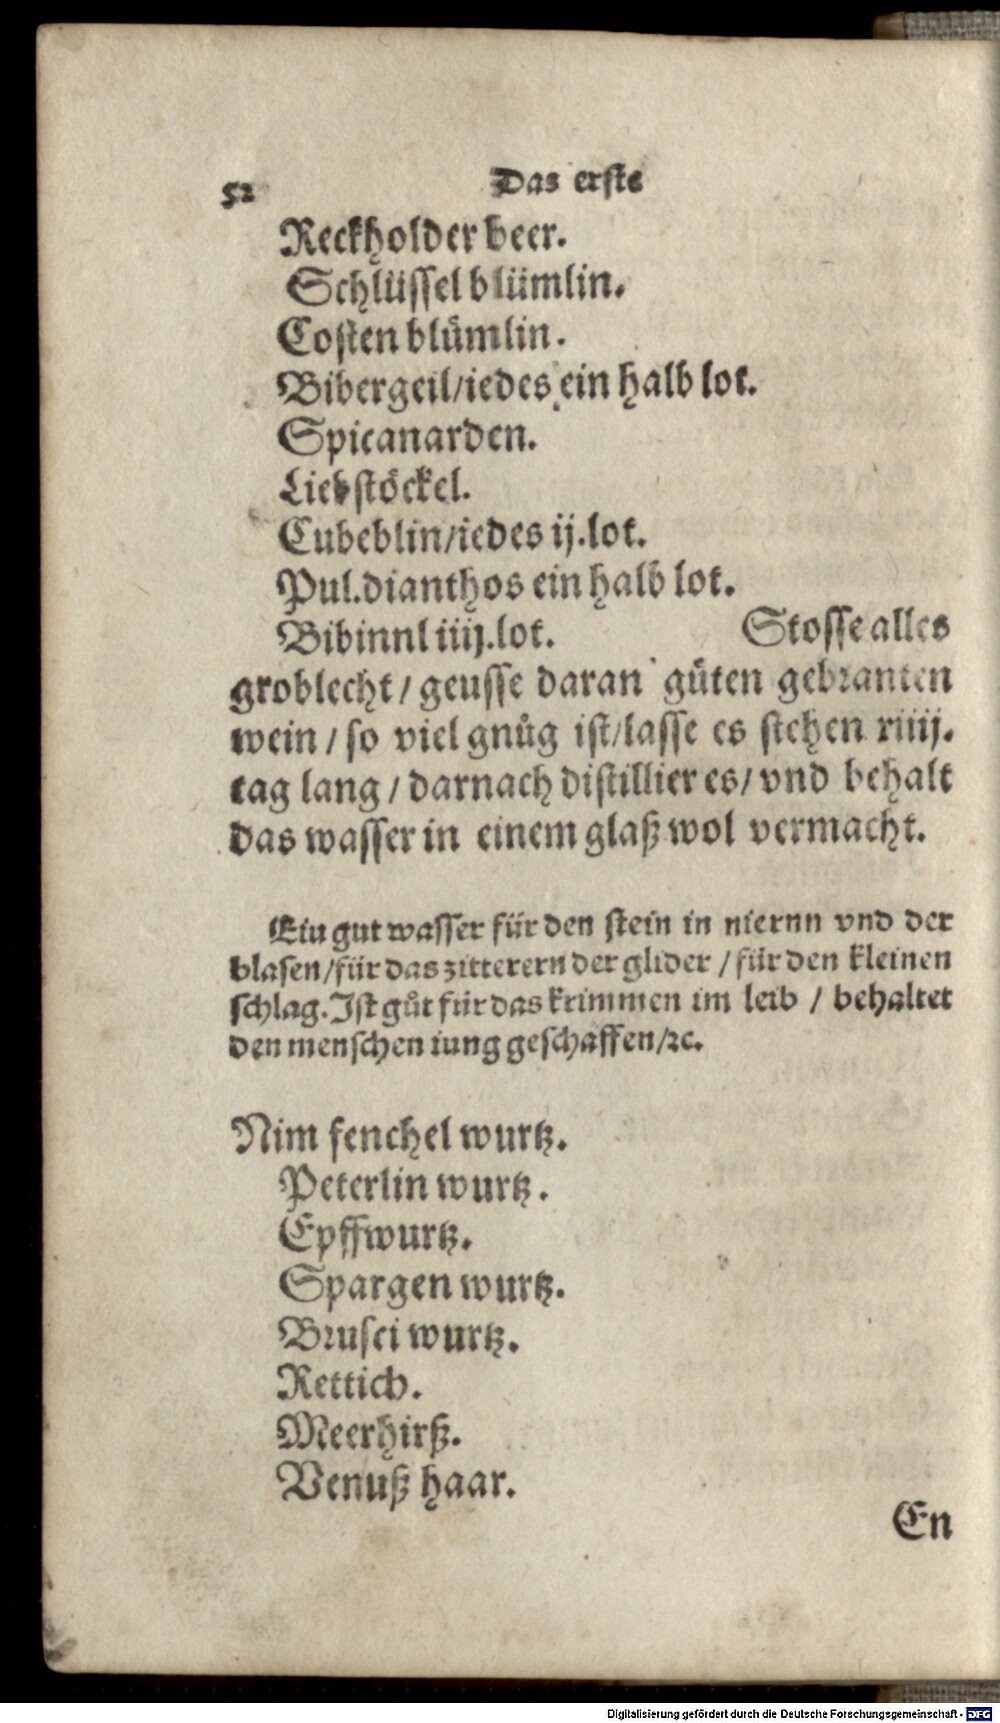 52 Das erste
Reckholder beer.
Schlüssel blümlin.
Costen blümlin.
Bibergeil/iedes ein halb lot.
Spicanarden.
Liebstöckel.
Cubeblin/iedes ij.lot.
Pul.dianthos ein halb lot.
Bibinnl iiij.lot. Stosse alles
groblecht/ geusse daran gůten gebranten
wein / so viel gnůg ist/lasse es stehen xiiij.
tag lang / darnach distillier es/ vnd behalt
das wasser in einem glaß wol vermacht.
Ein gut wasser für den stein in niernn vnd der
blasen/für das zitterern der glider / für den kleinen
schlag. Ist gůt für das krimmen im leib / behaltet
den menschen iung geschaffen/ꝛc.
Nim fenchel wurtz.
Peterlin wurtz.
Epffwurtz.
Spargen wurtz.
Brusci wurtz.
Rettich.
Meerhirß.
Venuß haar.
En
Digitalisierung gefördert durch die Deutsche Forschungsgemeinschaft - DFG